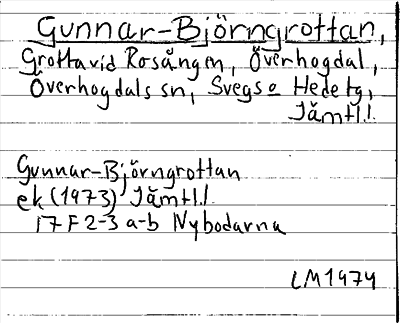 Gunnar-Björngrottan,
Grotta vid Rosången, Överhogdal,
Överhogdals sn, Svegs o Hede tg,
Jämtl.l.
Gunnar-Björngrottan
ek (1973) Jämtl.l.
17 F 2-3 a-b Nybodarna
LM 1974